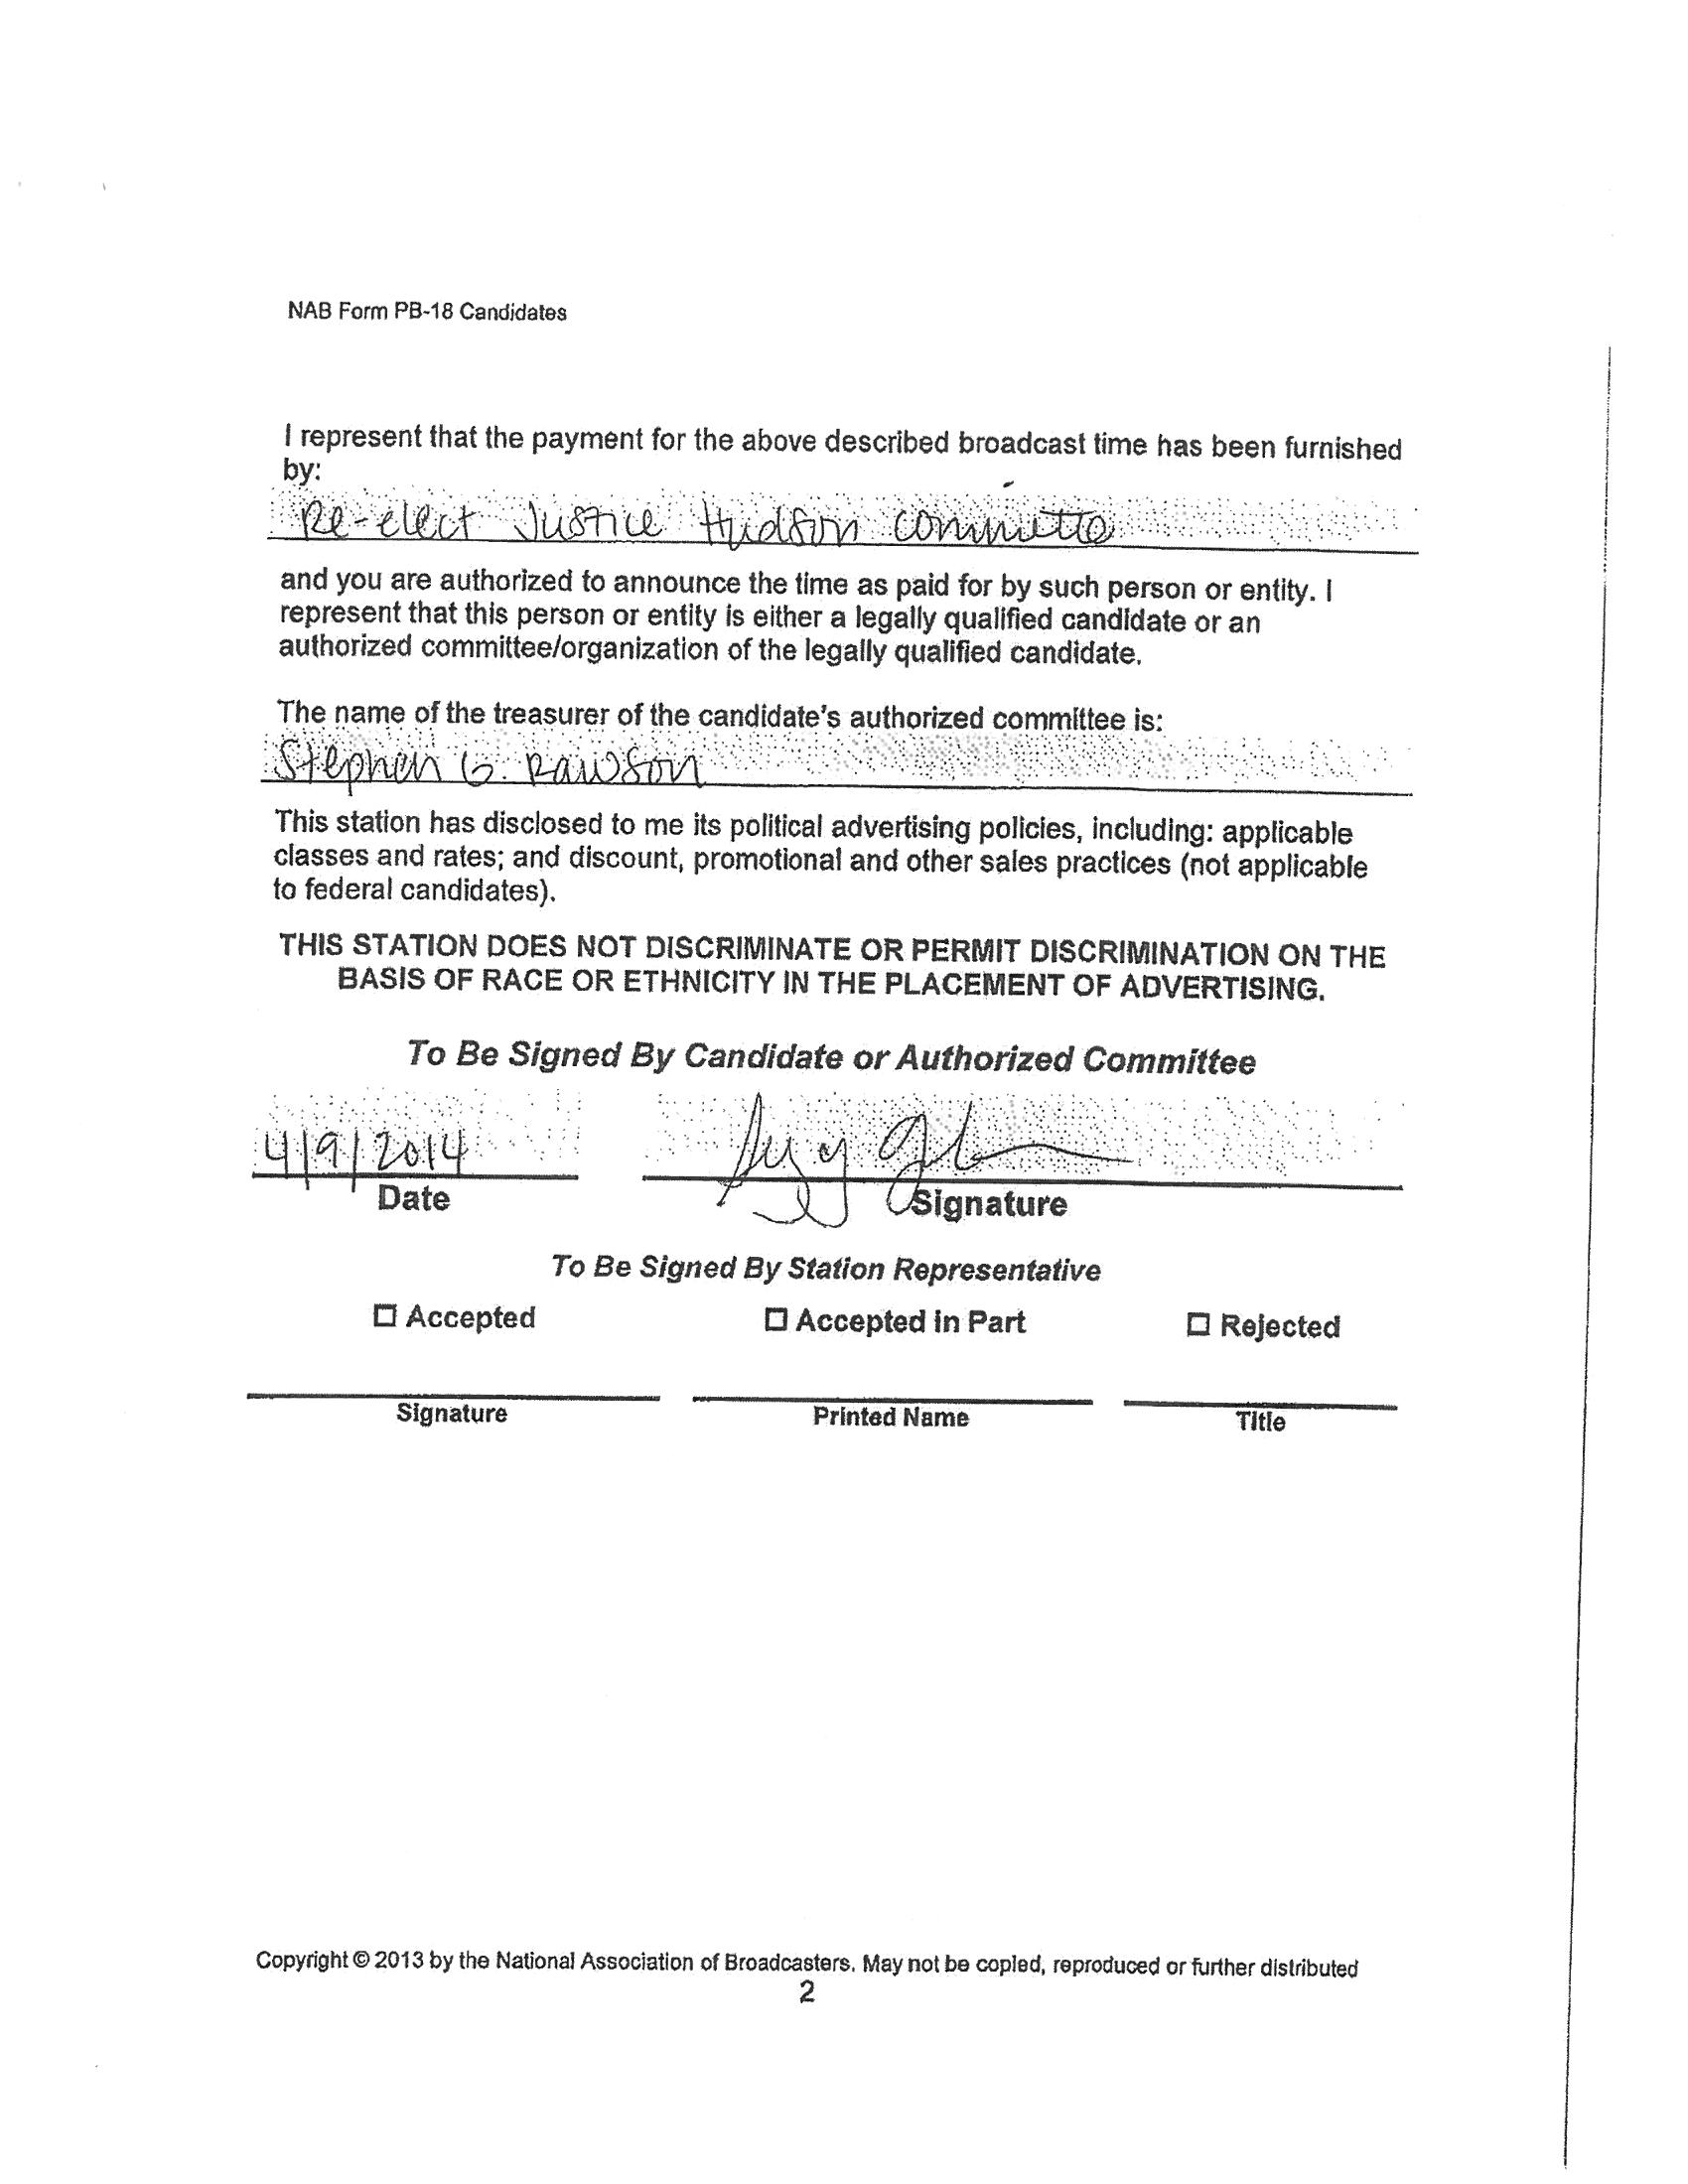 NAB Form PB-18 Candidates
I represent that the payment for the above described broadcast time has been furnished
by:
Re-elect Justice Hudson Committe
and you are authorized to announce the time as paid for by such person or entity. I
represent that this person or entity is either a legally qualified candidate or an
authorized committee/organization of the legally qualified candidate.
The name of the treasurer of the candidate's authorized committee is:
Stephen G. Rawson
This station has disclosed to me its political advertising policies, including: applicable
classes and rates; and discount, promotional and other sales practices (not applicable
to federal candidates).
THIS STATION DOES NOT DISCRIMINATE OR PERMIT DISCRIMINATION ON THE
BASIS OF RACE OR ETHNICITY IN THE PLACEMENT OF ADVERTISING.
To Be Signed By Candidate or Authorized Committee
4/9/2014
Date Signature
To Be Signed By Station Representative
☐ Accepted ☐ Accepted in Part ☐ Rejected
Signature Printed Name Title
Copyright © 2013 by the National Association of Broadcasters. May not be copied, reproduced or further distributed
2